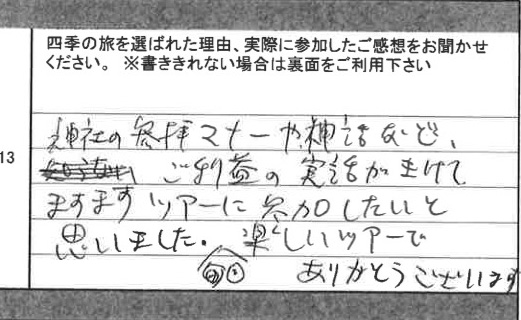 四季の旅を選ばれた理由、実際に参加したご感想をお聞かせ
ください。 ※書ききれない場合は裏面をご利用下さい
13
神社の参拝マナーや神話など、
ご利益の実話がきけて
ますますツアーに参加したいと
思いました。楽しいツアーで
ありがとうございます